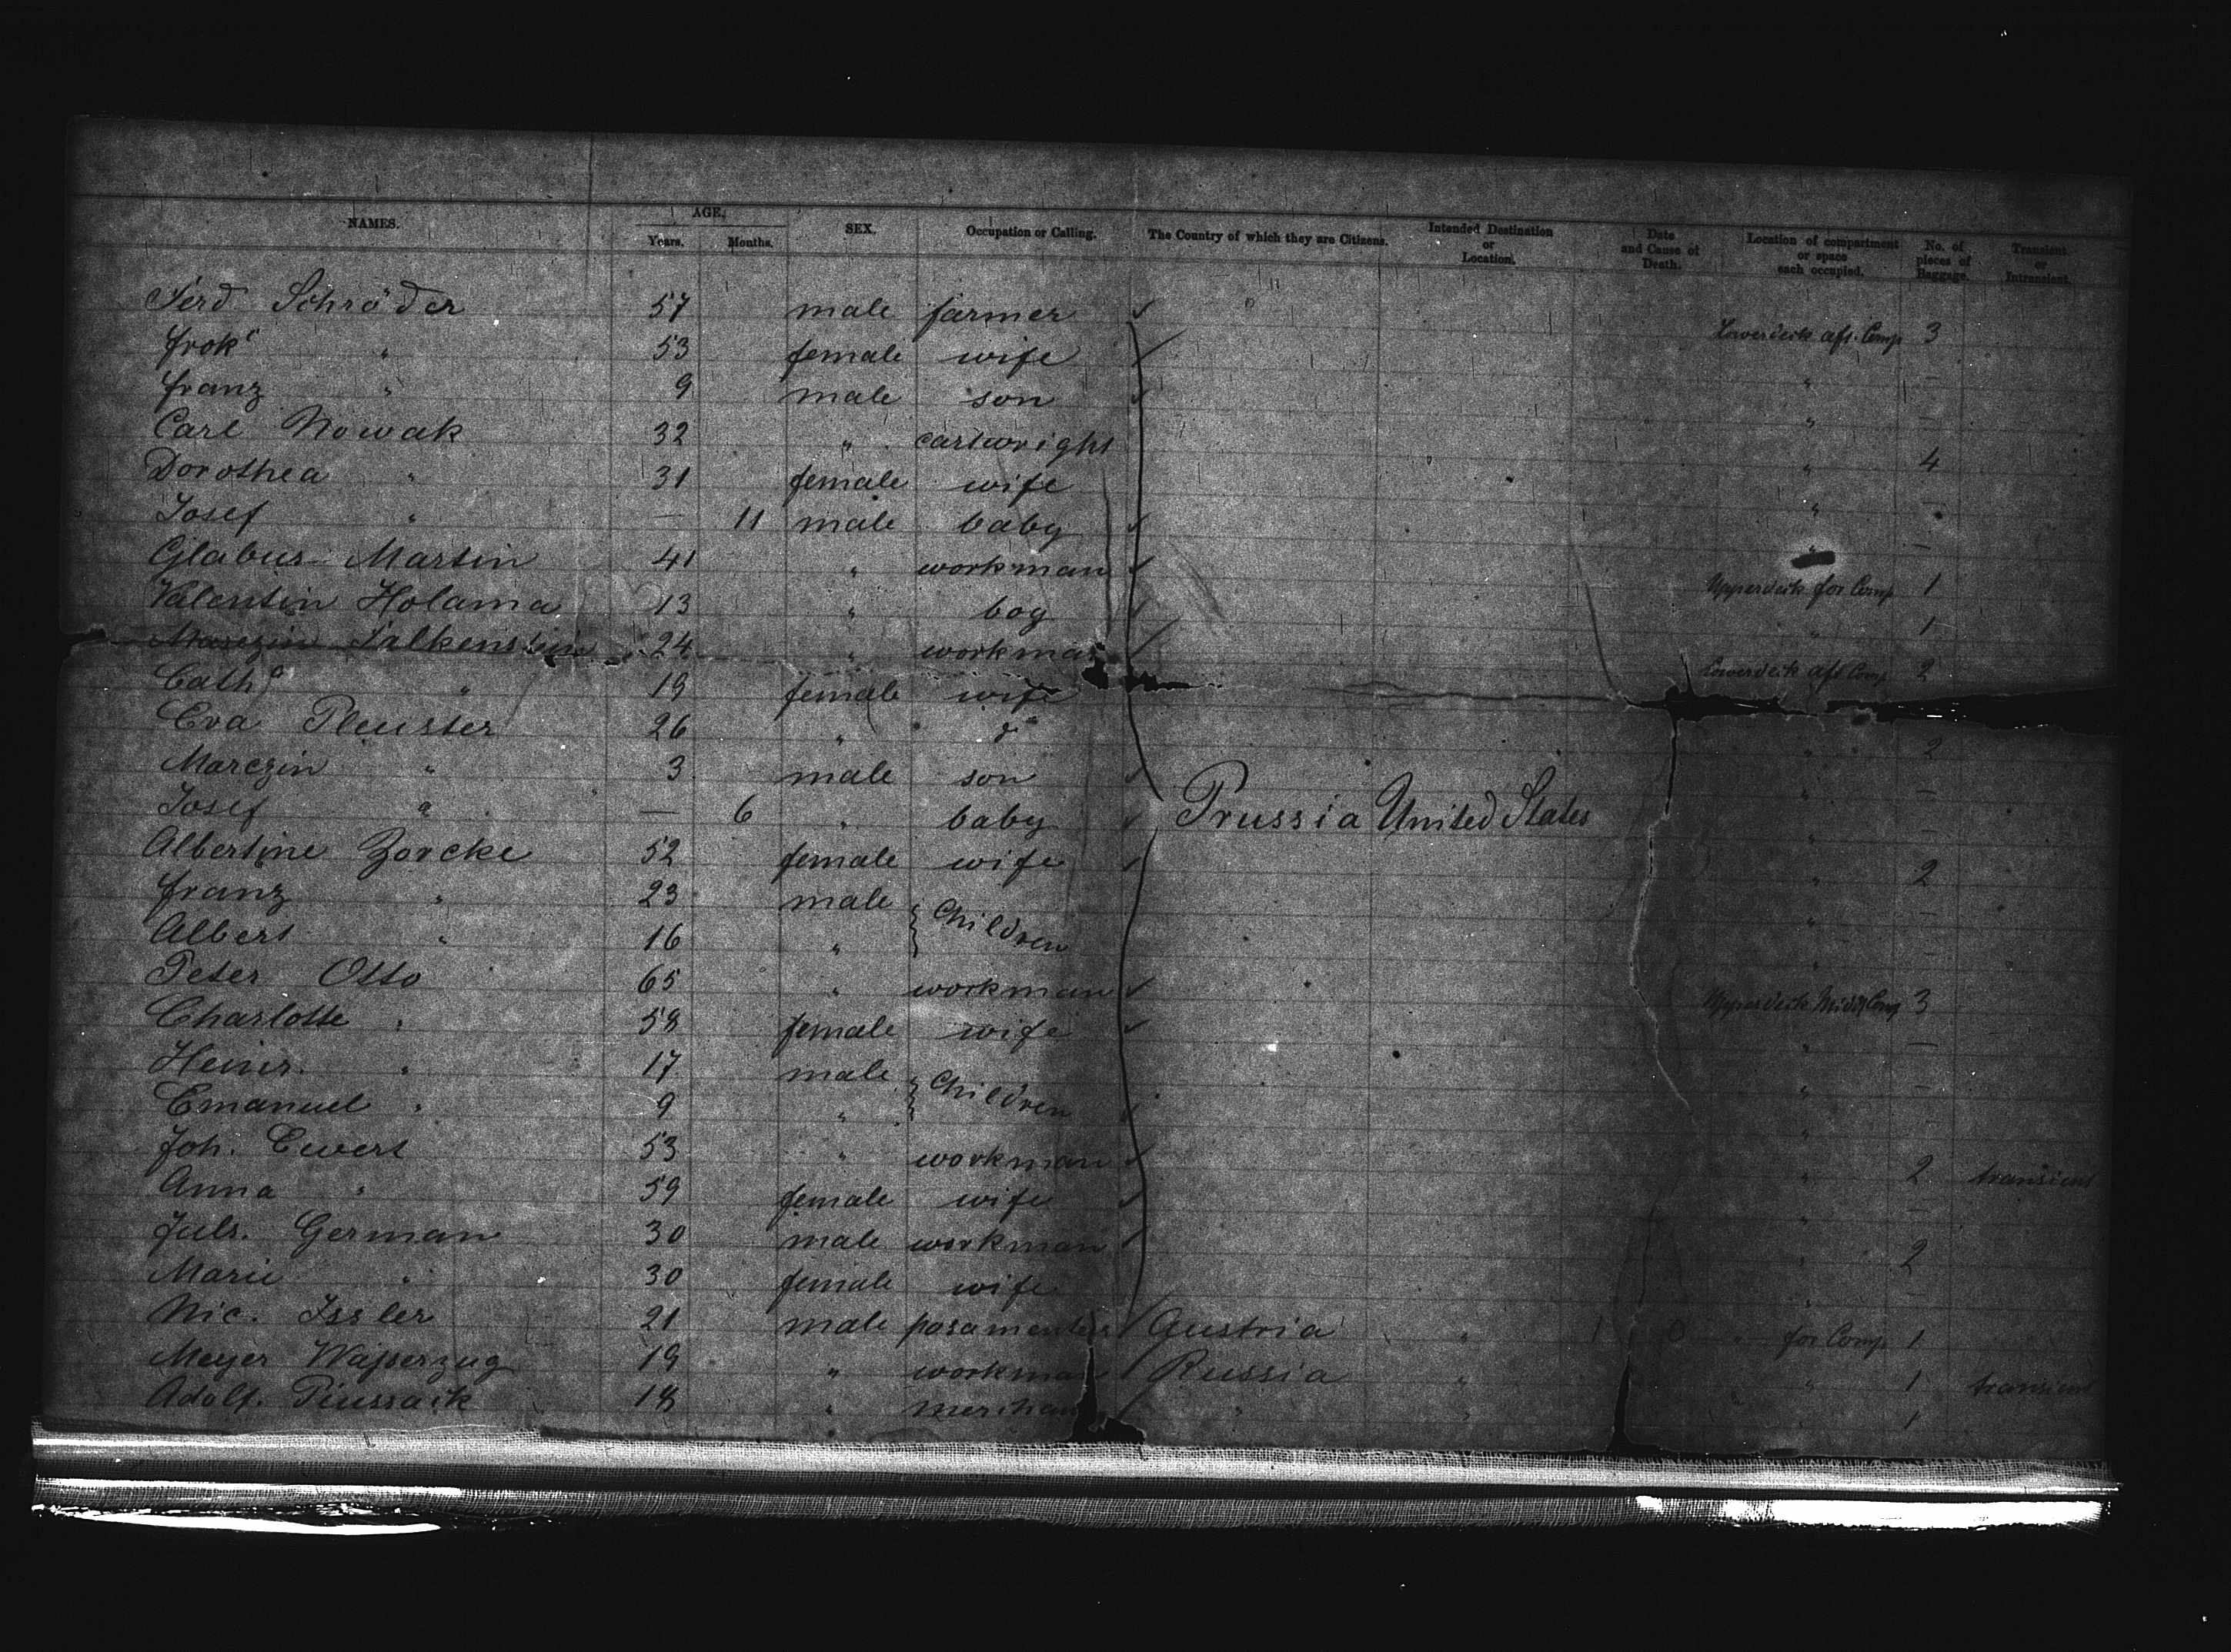 NAMES. AGE, Years. Months. SEX. Occupation or Calling. The Country of which they are Citizens. Intended Destination or Location. Date and Cause of Death. Location of compartment or space each occupied. No. of pieces of Baggage. Transient or Intransient.
Ferd Schröder 57 male farmer " Lowerdeck aft. Comp 3
" 53 female wife " —
Franz " 9 male son " —
Carl Nowak 32 " cartwright " 4
Dorothea " 31 female wife " —
Josef " — 11 male baby " —
Glabus Martin 41 " workman Upperdeck for Comp 1
Valentin Holama 13 " boy " 1
Falkenstein 24 " workman Lowerdeck aft Comp 2
Cath " 19 female wife
Eva Pleuster 26 " do " 2
Marczin " 3 male son " —
Josef " — 6 " baby Prussia United States " —
Albertine Zorcke 52 female wife " 2
Franz " 23 male Children " —
Albert " 16 " " —
Peter Otto 65 " workman Upperdeck Midd Comp 3
Charlotte " 58 female wife " —
Heinr. " 17 male Children " —
Emanuel " 9 " " —
Joh. Ewert 53 " workman " 2 transient
Anna " 59 female wife " —
Juls. German 30 male workman " 2
Marie " 30 female wife " —
Nic. Issler 21 male Austria " " for Comp. 1
Meyer Wasserzug 19 " workman Russia " " 1 transient
Adolf. 18 " merchant " " " 1